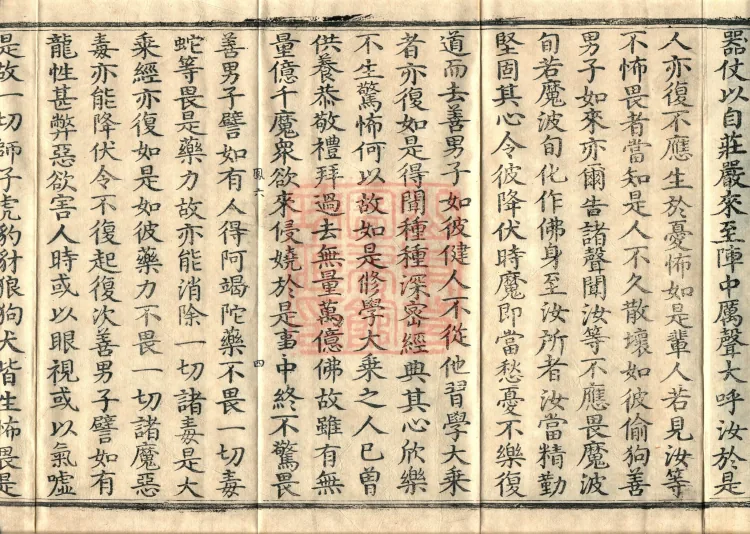 器仗以自莊嚴來至陣中厲聲大呼汝於是
人亦復不應生於憂怖如是輩人若見汝等
不怖畏者當知是人不久散壞如彼偷狗善
男子如來亦爾告諸聲聞汝等不應畏魔波
旬若魔波旬化作佛身至汝所者汝當精勤
堅固其心令彼降伏時魔即當愁憂不樂復
道而去善男子如彼健人不從他習學大乘
者亦復如是得聞種種深密經典其心欣樂
不生驚怖何以故如是修學大乘之人已曾
供養恭敬禮拜過去無量萬億佛故雖有無
量億千魔衆欲來侵嬈於是事中終不驚畏
鳳六 四
善男子譬如有人得阿竭陀藥不畏一切毒
蛇等畏是藥力故亦能消除一切諸毒是大
乘經亦復如是如彼藥力不畏一切諸魔惡
毒亦能降伏令不復起復次善男子譬如有
龍性甚弊惡欲害人時或以眼視或以氣噓
是故一切師子虎豹豺狼狗犬皆生怖畏是